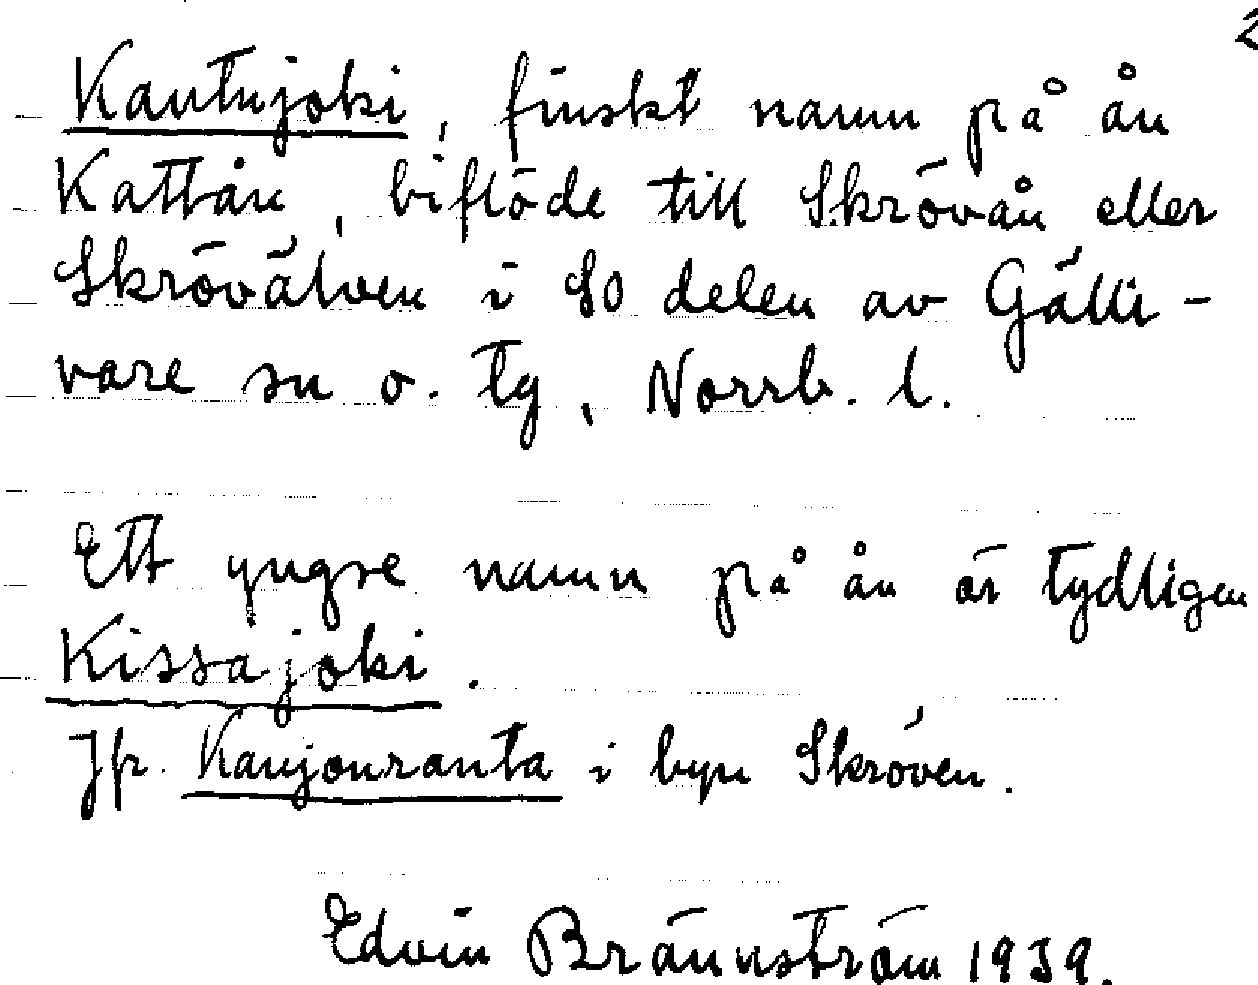 2
Kantujoki, finskt namn på ån
Kattån, biflöde till Skrövån eller
Skrövälven i SO delen av Gälli-
vare sn o. tg, Norrb. l.
Ett yngre namn på ån är tydligen
Kissajoki.
Jfr. Kanjonranta i byn Skröven.
Edvin Brännström 1939.